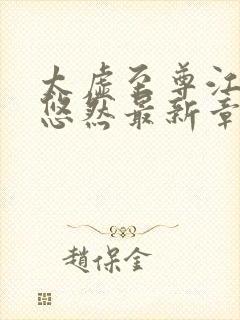 太虚至尊江
悠然最新章
趙保金